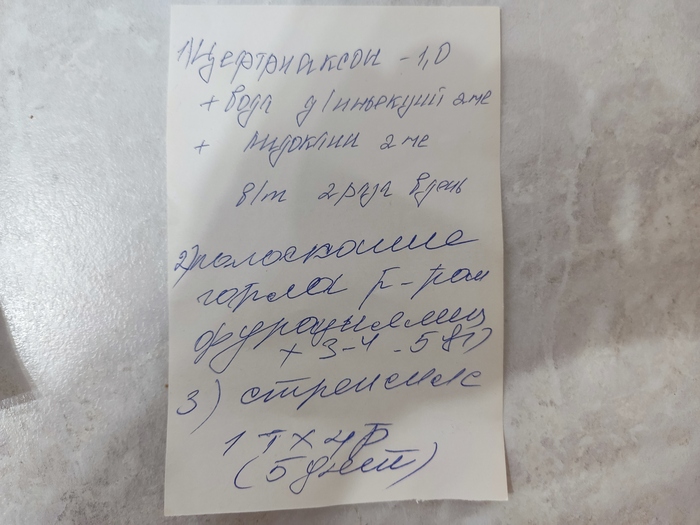 1) Цефтриаксон - 1,0
+ вода д/инъекций 2 мл
+ Лидокаин 2 мл
в/м 2 раза в день
2) полоскание
горла р-ром
фурацилина
+ 3-4 - 5
3) стрепсилс
1 т х 4 р
(5 дней)